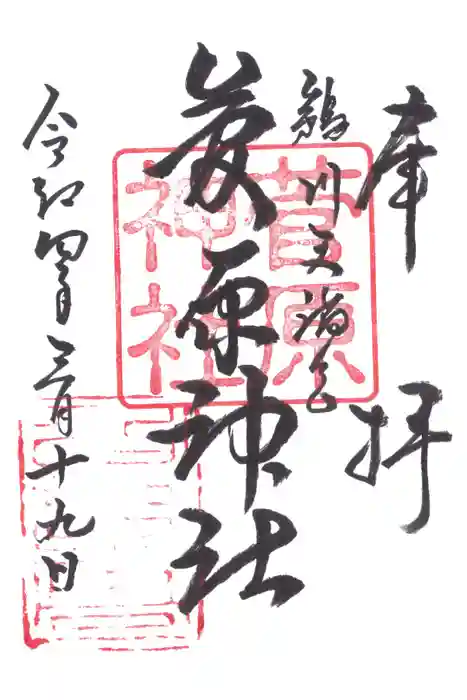 奉拝
鵜川天満宮
菅原神社
令和四年三月十九日
菅原
神社